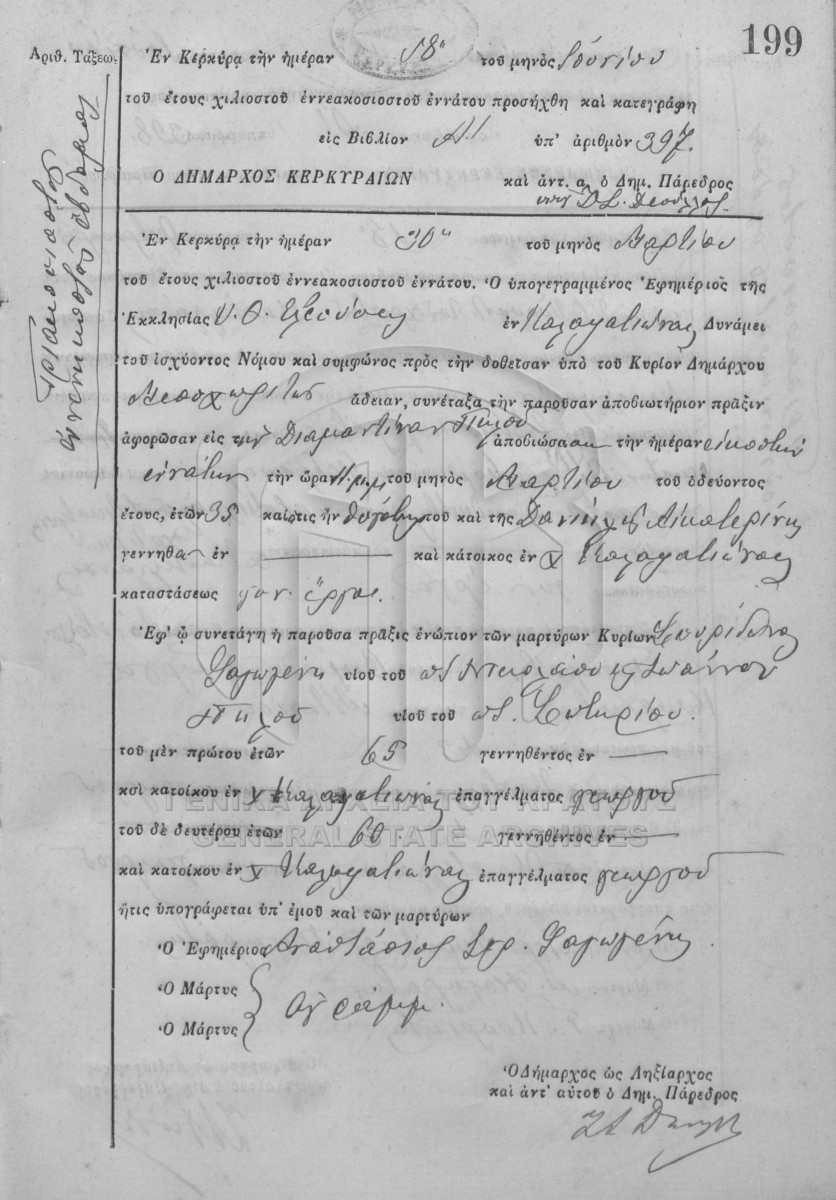 199
Ἀριθ. Τάξεως
Τριακοσιοστὸς
ἐνενηκοστὸς ἕβδομος
Ἐν Κερκύρᾳ τὴν ἡμέραν 18ην τοῦ μηνὸς Ἰουνίου
τοῦ ἔτους χιλιοστοῦ ἐννεακοσιοστοῦ ἐννάτου προσήχθη καὶ κατεγράφη
εἰς Βιβλίον ὑπ' ἀριθμὸν 397.
Ο ΔΗΜΑΡΧΟΣ ΚΕΡΚΥΡΑΙΩΝ καὶ ἀντ. α. ὁ Δημ. Πάρεδρος
Ἐν Κερκύρᾳ τὴν ἡμέραν 30ην τοῦ μηνὸς Μαρτίου
τοῦ ἔτους χιλιοστοῦ ἐννεακοσιοστοῦ ἐννάτου. Ὁ ὑπογεγραμμένος Ἐφημέριος τῆς
Ἐκκλησίας Υ. Θ. Ἐλεούσης ἐν Καλαφατιώνας Δυνάμει
τοῦ ἰσχύοντος Νόμου καὶ συμφώνος πρὸς τὴν δοθεῖσαν ὑπὸ τοῦ Κυρίου Δημάρχου
Μεσοχωριτῶν ἄδειαν, συνέταξα τὴν παροῦσαν ἀποβιωτήριον πρᾶξιν
ἀφορῶσαν εἰς τὴν Διαμαντίναν Πηλοῦ ἀποβιώσασαν τὴν ἡμέραν εἰκοστὴν
ἐννάτην τὴν ὥραν π.μ. τοῦ μηνὸς Μαρτίου τοῦ ὁδεύοντος
ἔτους, ἐτῶν 35 καὶ τις ἦν θυγάτηρ τοῦ καὶ τῆς Δανιὴλ Αἰκατερίνης
γεννηθεῖσα ἐν — καὶ κάτοικος ἐν χ Καλαφατιώνας
καταστάσεως γυν. ἔργα.
Ἐφ' ᾧ συνετάγη ἡ παροῦσα πρᾶξις ἐνώπιον τῶν μαρτύρων Κυρίων Σπυρίδωνα
υἱοῦ τοῦ ποτ. Νικολάου καὶ Ἰωάννου
Πηλοῦ υἱοῦ τοῦ ποτ. Σωτηρίου.
τοῦ μὲν πρώτου ἐτῶν 65 γεννηθέντος ἐν —
καὶ κατοίκου ἐν χ Καλαφατιώνας ἐπαγγέλματος γεωργοῦ
τοῦ δὲ δευτέρου ἐτῶν 60 γεννηθέντος ἐν —
καὶ κατοίκου ἐν χ Καλαφατιώνας ἐπαγγέλματος γεωργοῦ
ἥτις ὑπογράφεται ὑπ' ἐμοῦ καὶ τῶν μαρτύρων
Ὁ Ἐφημέριος Ἀναστάσιος Σπ.
Ὁ Μάρτυς
ἀγράμμ.
Ὁ Μάρτυς
Ὁ Δήμαρχος ὡς Ληξίαρχος
καὶ ἀντ' αὐτοῦ ὁ Δημ. Πάρεδρος
ΓΕΝΙΚΑ ΑΡΧΕΙΑ ΤΟΥ ΚΡΑΤΟΥΣ
GENERAL STATE ARCHIVES